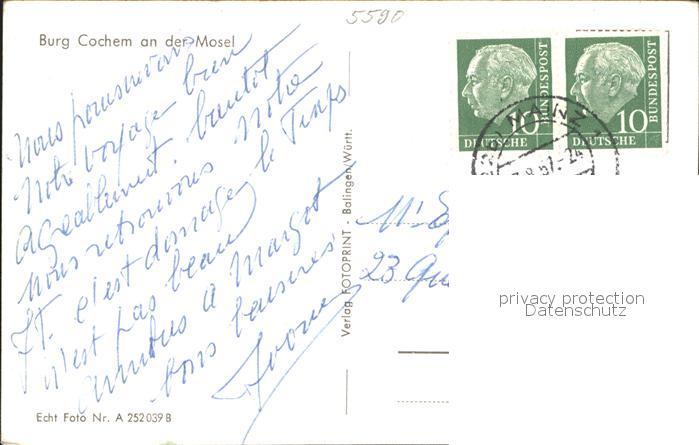 5590
Burg Cochem an der Mosel
Nous poursuivons
notre voyage bien
agréablement. bientôt
nous retrouvons notre
c'est domage le Temps
n'est pas beau
Amitiés à Margot
bons baisers
Yvonne
Echt Foto Nr. A 252 039 B
Verlag FOTOPRINT - Balingen/Württ.
10
DEUTSCHE
BUNDESPOST
10
DEUTSCHE
BUNDESPOST
MAINZ
.8.57.-24
23
privacy protection
Datenschutz